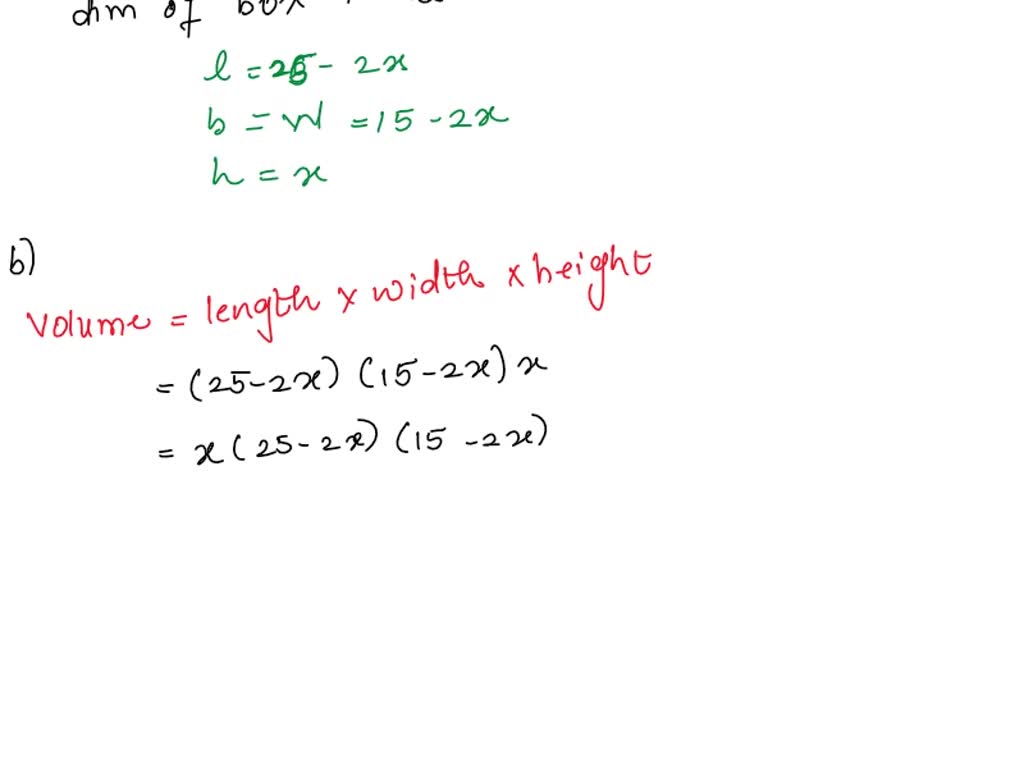 dim of box
l = 25 - 2x
b = w = 15 - 2x
h = x
b)
Volume = length x width x height
= (25-2x) (15-2x) x
= x (25-2x) (15 -2x)